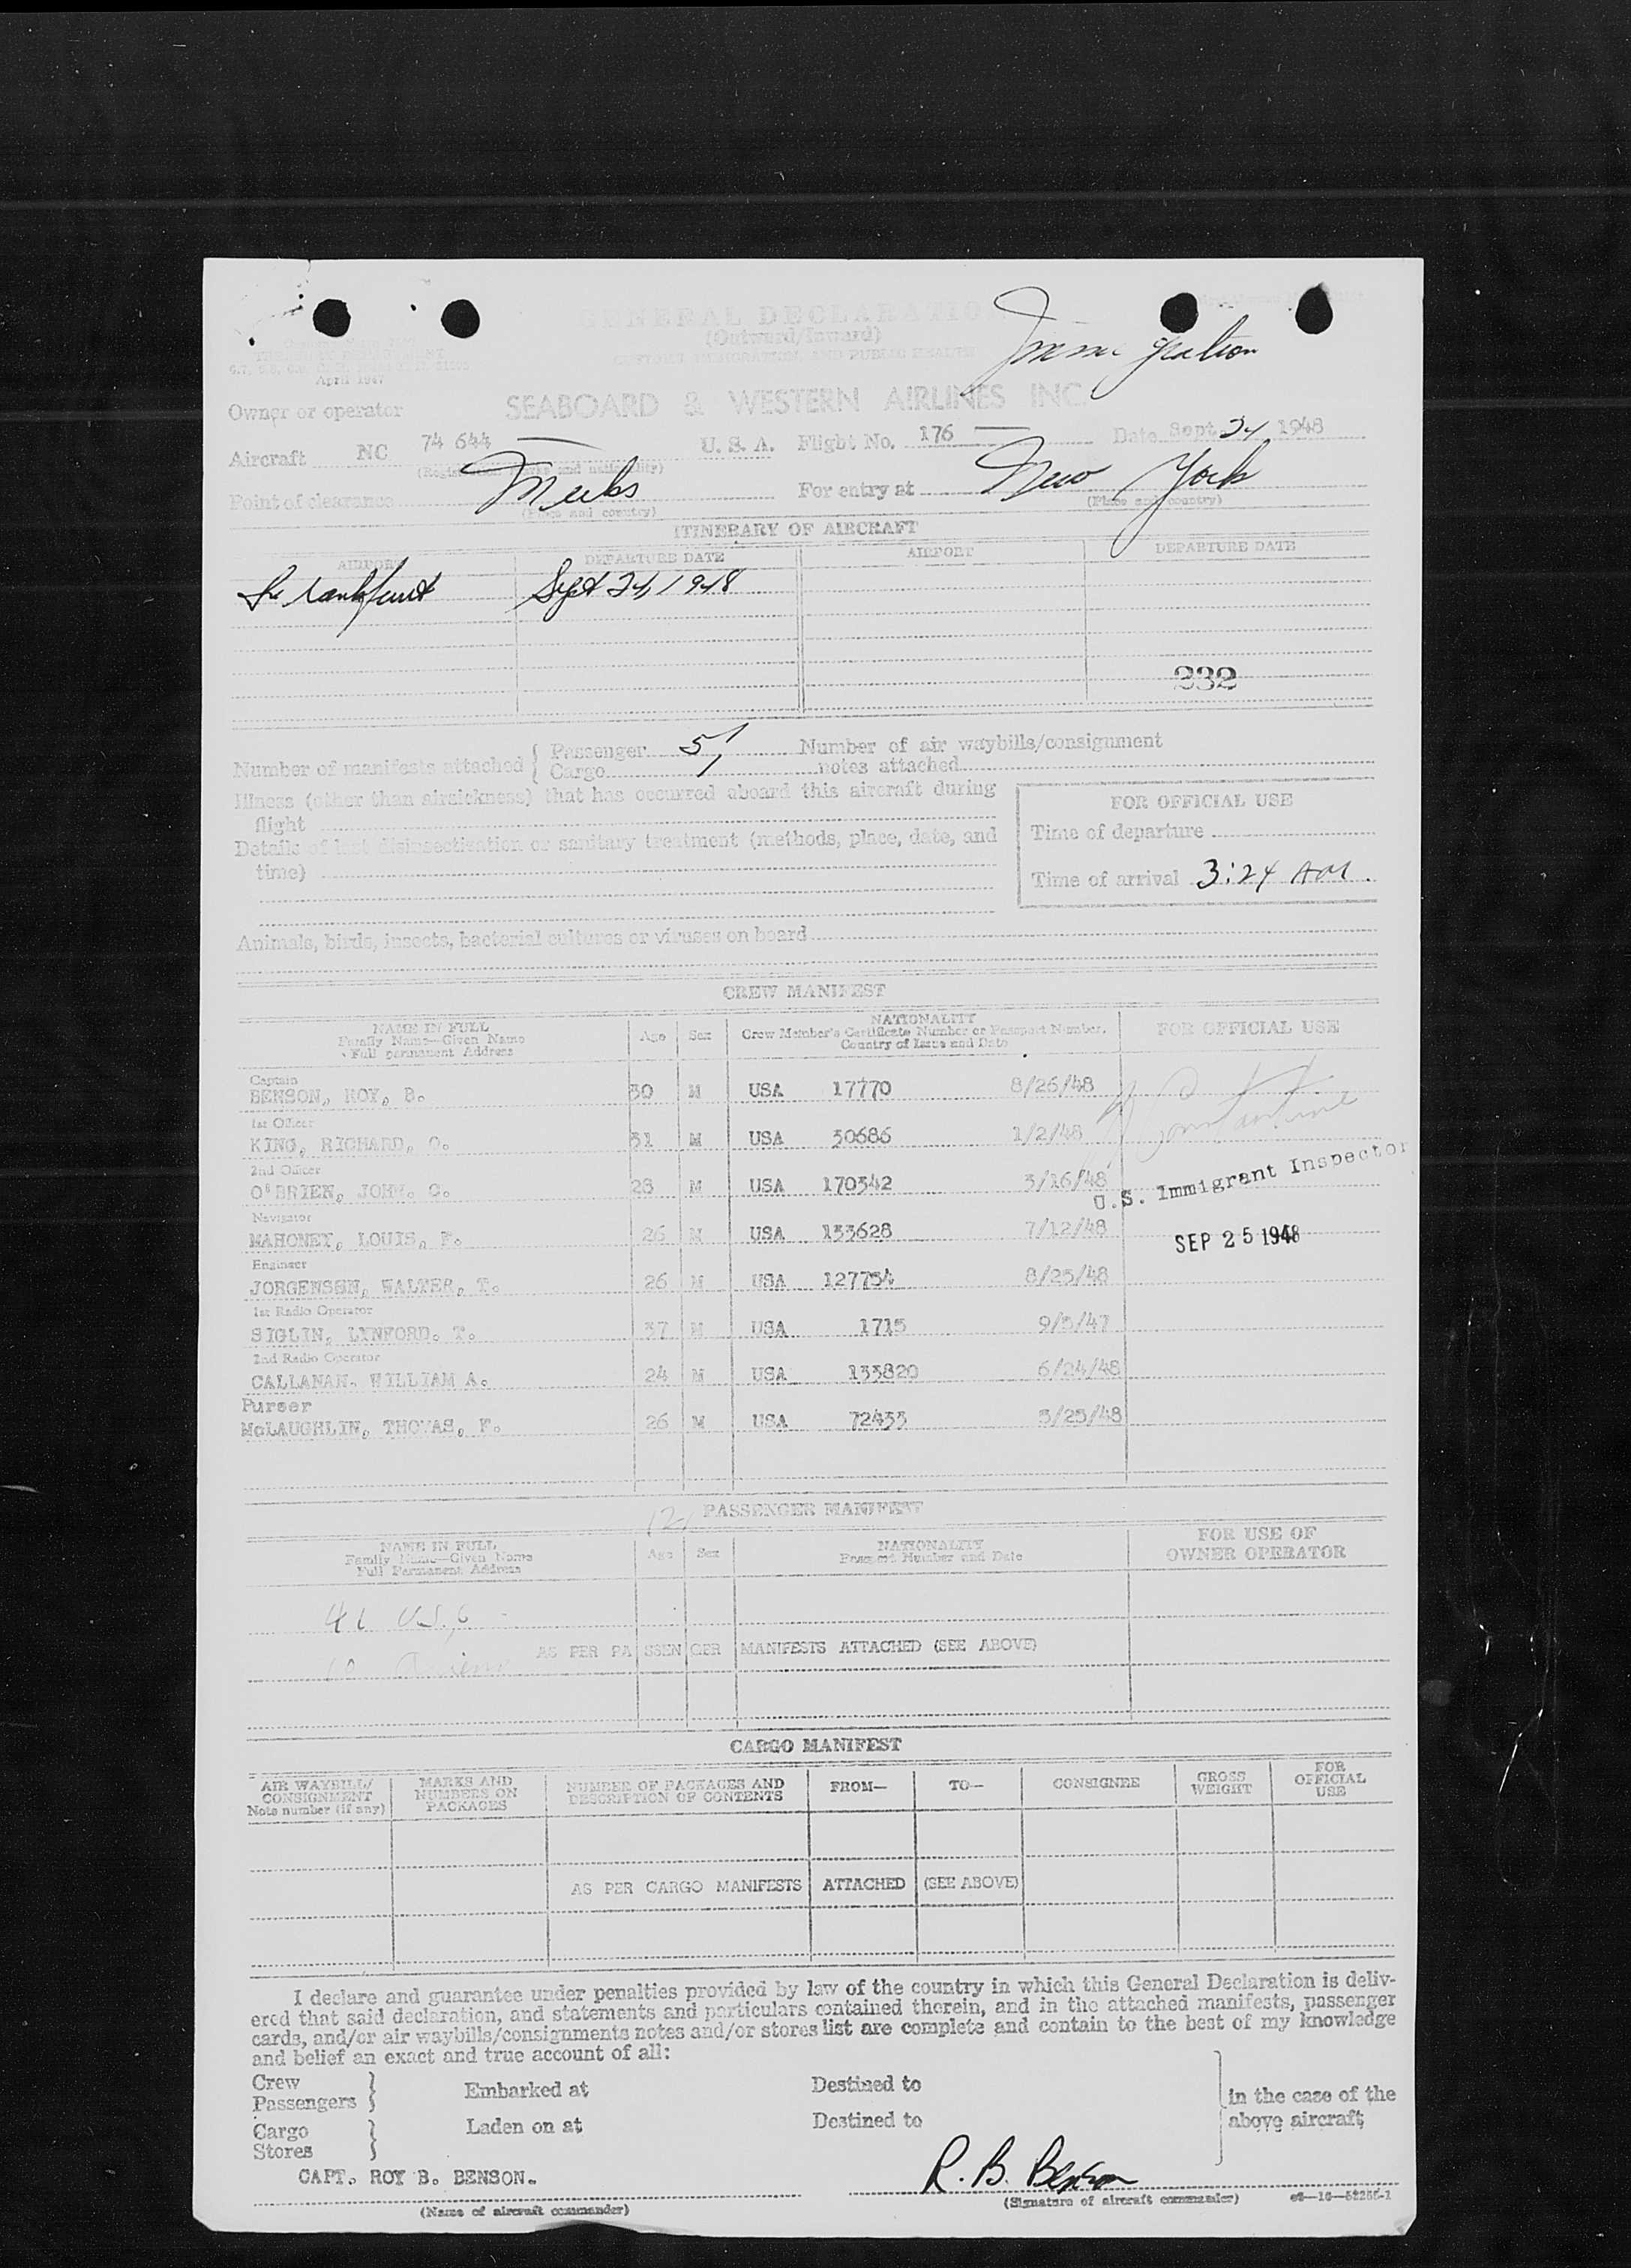 GENERAL DECLARATION
(Outward/Inward)
CUSTOMS IMMIGRATION AND PUBLIC HEALTH
April 1947
Immigration
Owner or operator SEABOARD & WESTERN AIRLINES INC.
Aircraft NC 74 644 U. S. A. Flight No. 176 Date Sept 24 1948
(Registration marks and nationality)
Point of clearance Meeks For entry at New York
(Place and country) (Place and country)
ITINERARY OF AIRCRAFT
AIRPORT DEPARTURE DATE AIRPORT DEPARTURE DATE
Frankfurt Sept 24, 1948
232
Number of manifests attached { Passenger 5 Number of air waybills/consignment
Cargo 1 notes attached
Illness (other than airsickness) that has occurred aboard this aircraft during
flight
Details of last disinsectization or sanitary treatment (methods, place, date, and
time)
FOR OFFICIAL USE
Time of departure
Time of arrival 3:24 AM.
Animals, birds, insects, bacterial cultures or viruses on board
CREW MANIFEST
NAME IN FULL
Family Name—Given Name
Full permanent Address
Age Sex
NATIONALITY
Crew Member's Certificate Number or Passport Number,
Country of Issue and Date
FOR OFFICIAL USE
Captain
BENSON, ROY, B. 30 M USA 17770 8/26/48
1st Officer
KING, RICHARD, C. 31 M USA 50686 1/2/48
2nd Officer
O'BRIEN, JOHN. C. 28 M USA 170342 3/16/48
U.S. Immigrant Inspector
Navigator
MAHONEY, LOUIS, F. 26 M USA 133628 7/12/48
SEP 25 1948
Engineer
JORGENSEN, WALTER, T. 26 M USA 127754 8/25/48
1st Radio Operator
SIGLIN, LYNFORD. T. 37 M USA 1715 9/5/47
2nd Radio Operator
CALLANAN. WILLIAM A. 24 M USA 133820 6/24/48
Purser
McLAUGHLIN, THOMAS, F. 26 M USA 72433 3/25/48
PASSENGER MANIFEST
NAME IN FULL
Family Name—Given Name
Full Permanent Address
Age Sex
NATIONALITY
Passport Number and Date
FOR USE OF
OWNER OPERATOR
41 U.S.C
AS PER PASSENGER MANIFESTS ATTACHED (SEE ABOVE)
10 Aliens
CARGO MANIFEST
AIR WAYBILL/
CONSIGNMENT
Note number (if any)
MARKS AND
NUMBERS ON
PACKAGES
NUMBER OF PACKAGES AND
DESCRIPTION OF CONTENTS
FROM— TO— CONSIGNEE
GROSS
WEIGHT
FOR
OFFICIAL
USE
AS PER CARGO MANIFESTS ATTACHED (SEE ABOVE)
I declare and guarantee under penalties provided by law of the country in which this General Declaration is deliv-
ered that said declaration, and statements and particulars contained therein, and in the attached manifests, passenger
cards, and/or air waybills/consignments notes and/or stores list are complete and contain to the best of my knowledge
and belief an exact and true account of all:
Crew
Passengers } Embarked at Destined to
Cargo
Stores } Laden on at Destined to
in the case of the
above aircraft
CAPT. ROY B. BENSON. R. B. Benson
(Name of aircraft commander) (Signature of aircraft commander)